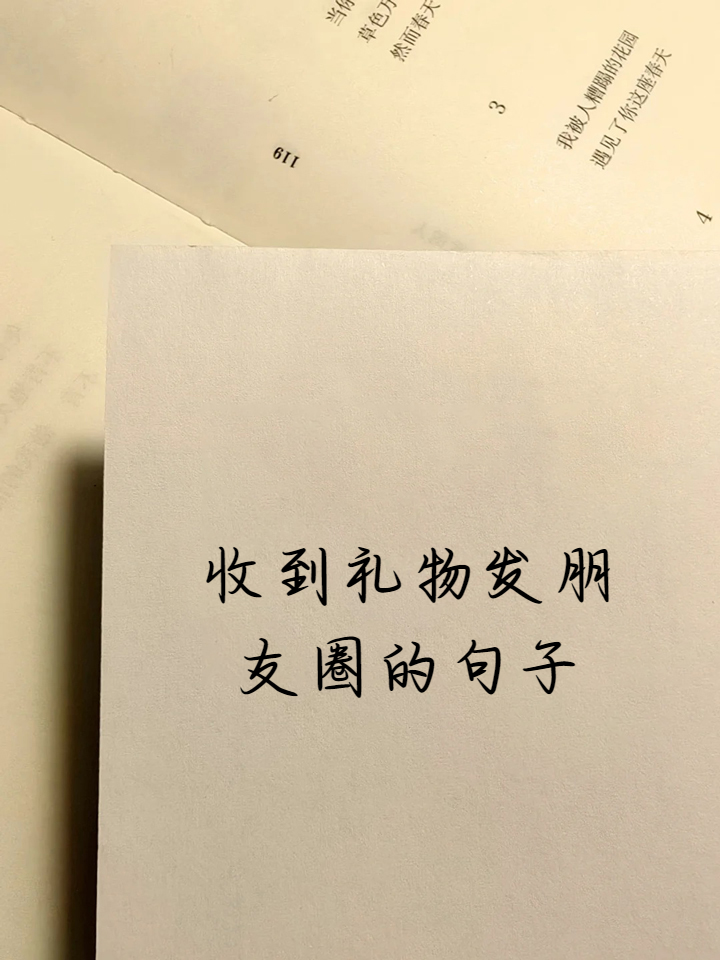 草色万
然而春天
3
我被人糟蹋的花园
遇见了你这座春天
119
4
收到礼物发朋
友圈的句子